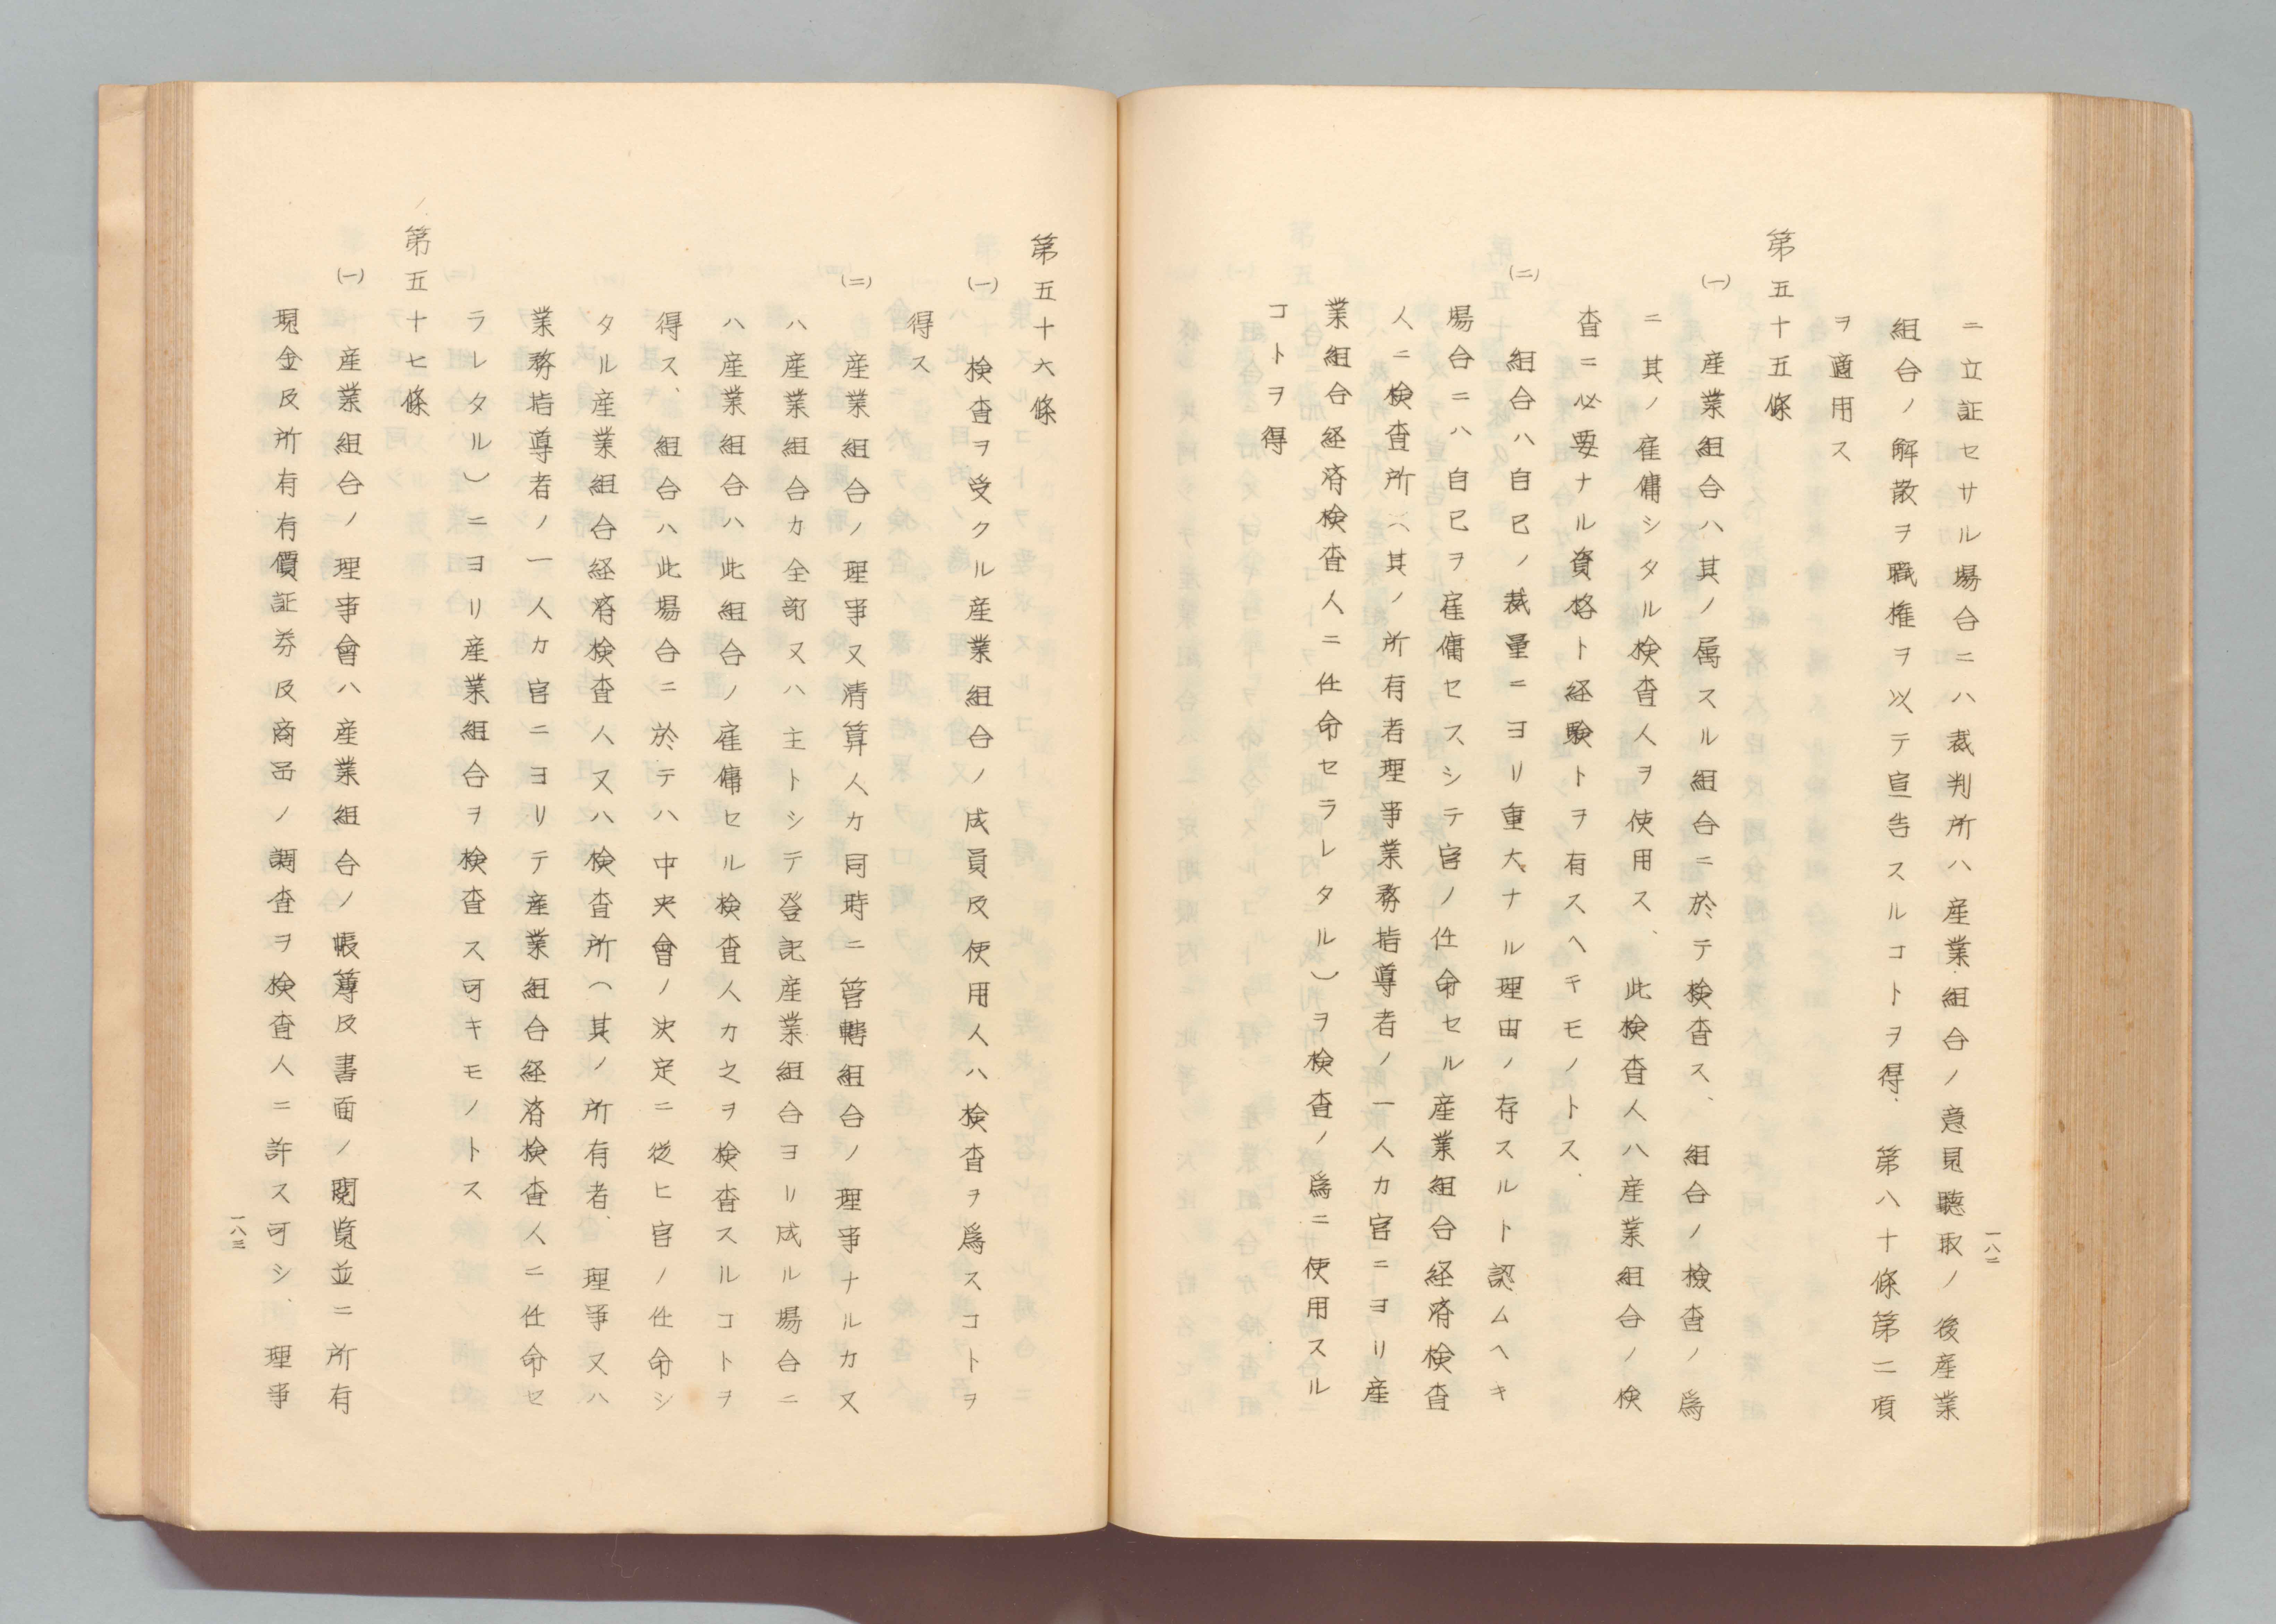 ニ立証セサル場合ニハ裁判所ハ産業組合ノ意見聴取ノ後産業
組合ノ解散ヲ職権ヲ以テ宣告スルコトヲ得、第八十條第二項
ヲ適用ス
第五十五條
(一) 産業組合ハ其ノ属スル組合ニ於テ検査ス、組合ノ檢査ノ爲
ニ其ノ雇傭シタル検査人ヲ使用ス、此検査人ハ産業組合ノ検
査ニ必要ナル資格ト経験トヲ有スヘキモノトス、
(二) 組合ハ自己ノ裁量ニヨリ重大ナル理由ノ存スルト認ムヘキ
場合ニハ自己ヲ雇傭セスシテ官ノ任命セル産業組合経済検査
人ニ検査所(其ノ所有者理事業務指導者ノ一人カ官ニヨリ産
業組合経済検査人ニ任命セラレタル)ヲ検査ノ爲ニ使用スル
コトヲ得
一八二
第五十六條
(一) 検査ヲ受クル産業組合ノ成員及使用人ハ検査ヲ爲スコトヲ
得ス
(二) 産業組合ノ理事又清算人カ同時ニ管轄組合ノ理事ナルカ又
ハ産業組合カ全部又ハ主トシテ登記産業組合ヨリ成ル場合ニ
ハ産業組合ハ此組合ノ雇傭セル検査人カ之ヲ検査スルコトヲ
得ス、組合ハ此場合ニ於テハ中央會ノ決定ニ従ヒ官ノ任命シ
タル産業組合経済検査人又ハ検査所(其ノ所有者、理事又ハ
業務指導者ノ一人カ官ニヨリテ産業組合経済検査人ニ任命セ
ラレタル)ニヨリ産業組合ヲ検査ス可キモノトス
第五十七條
(一) 産業組合ノ理事會ハ産業組合ノ帳簿及書面ノ閲覧並ニ所有
現金及所有有價証券及商品ノ調査ヲ検査人ニ許ス可シ、理事
一八三